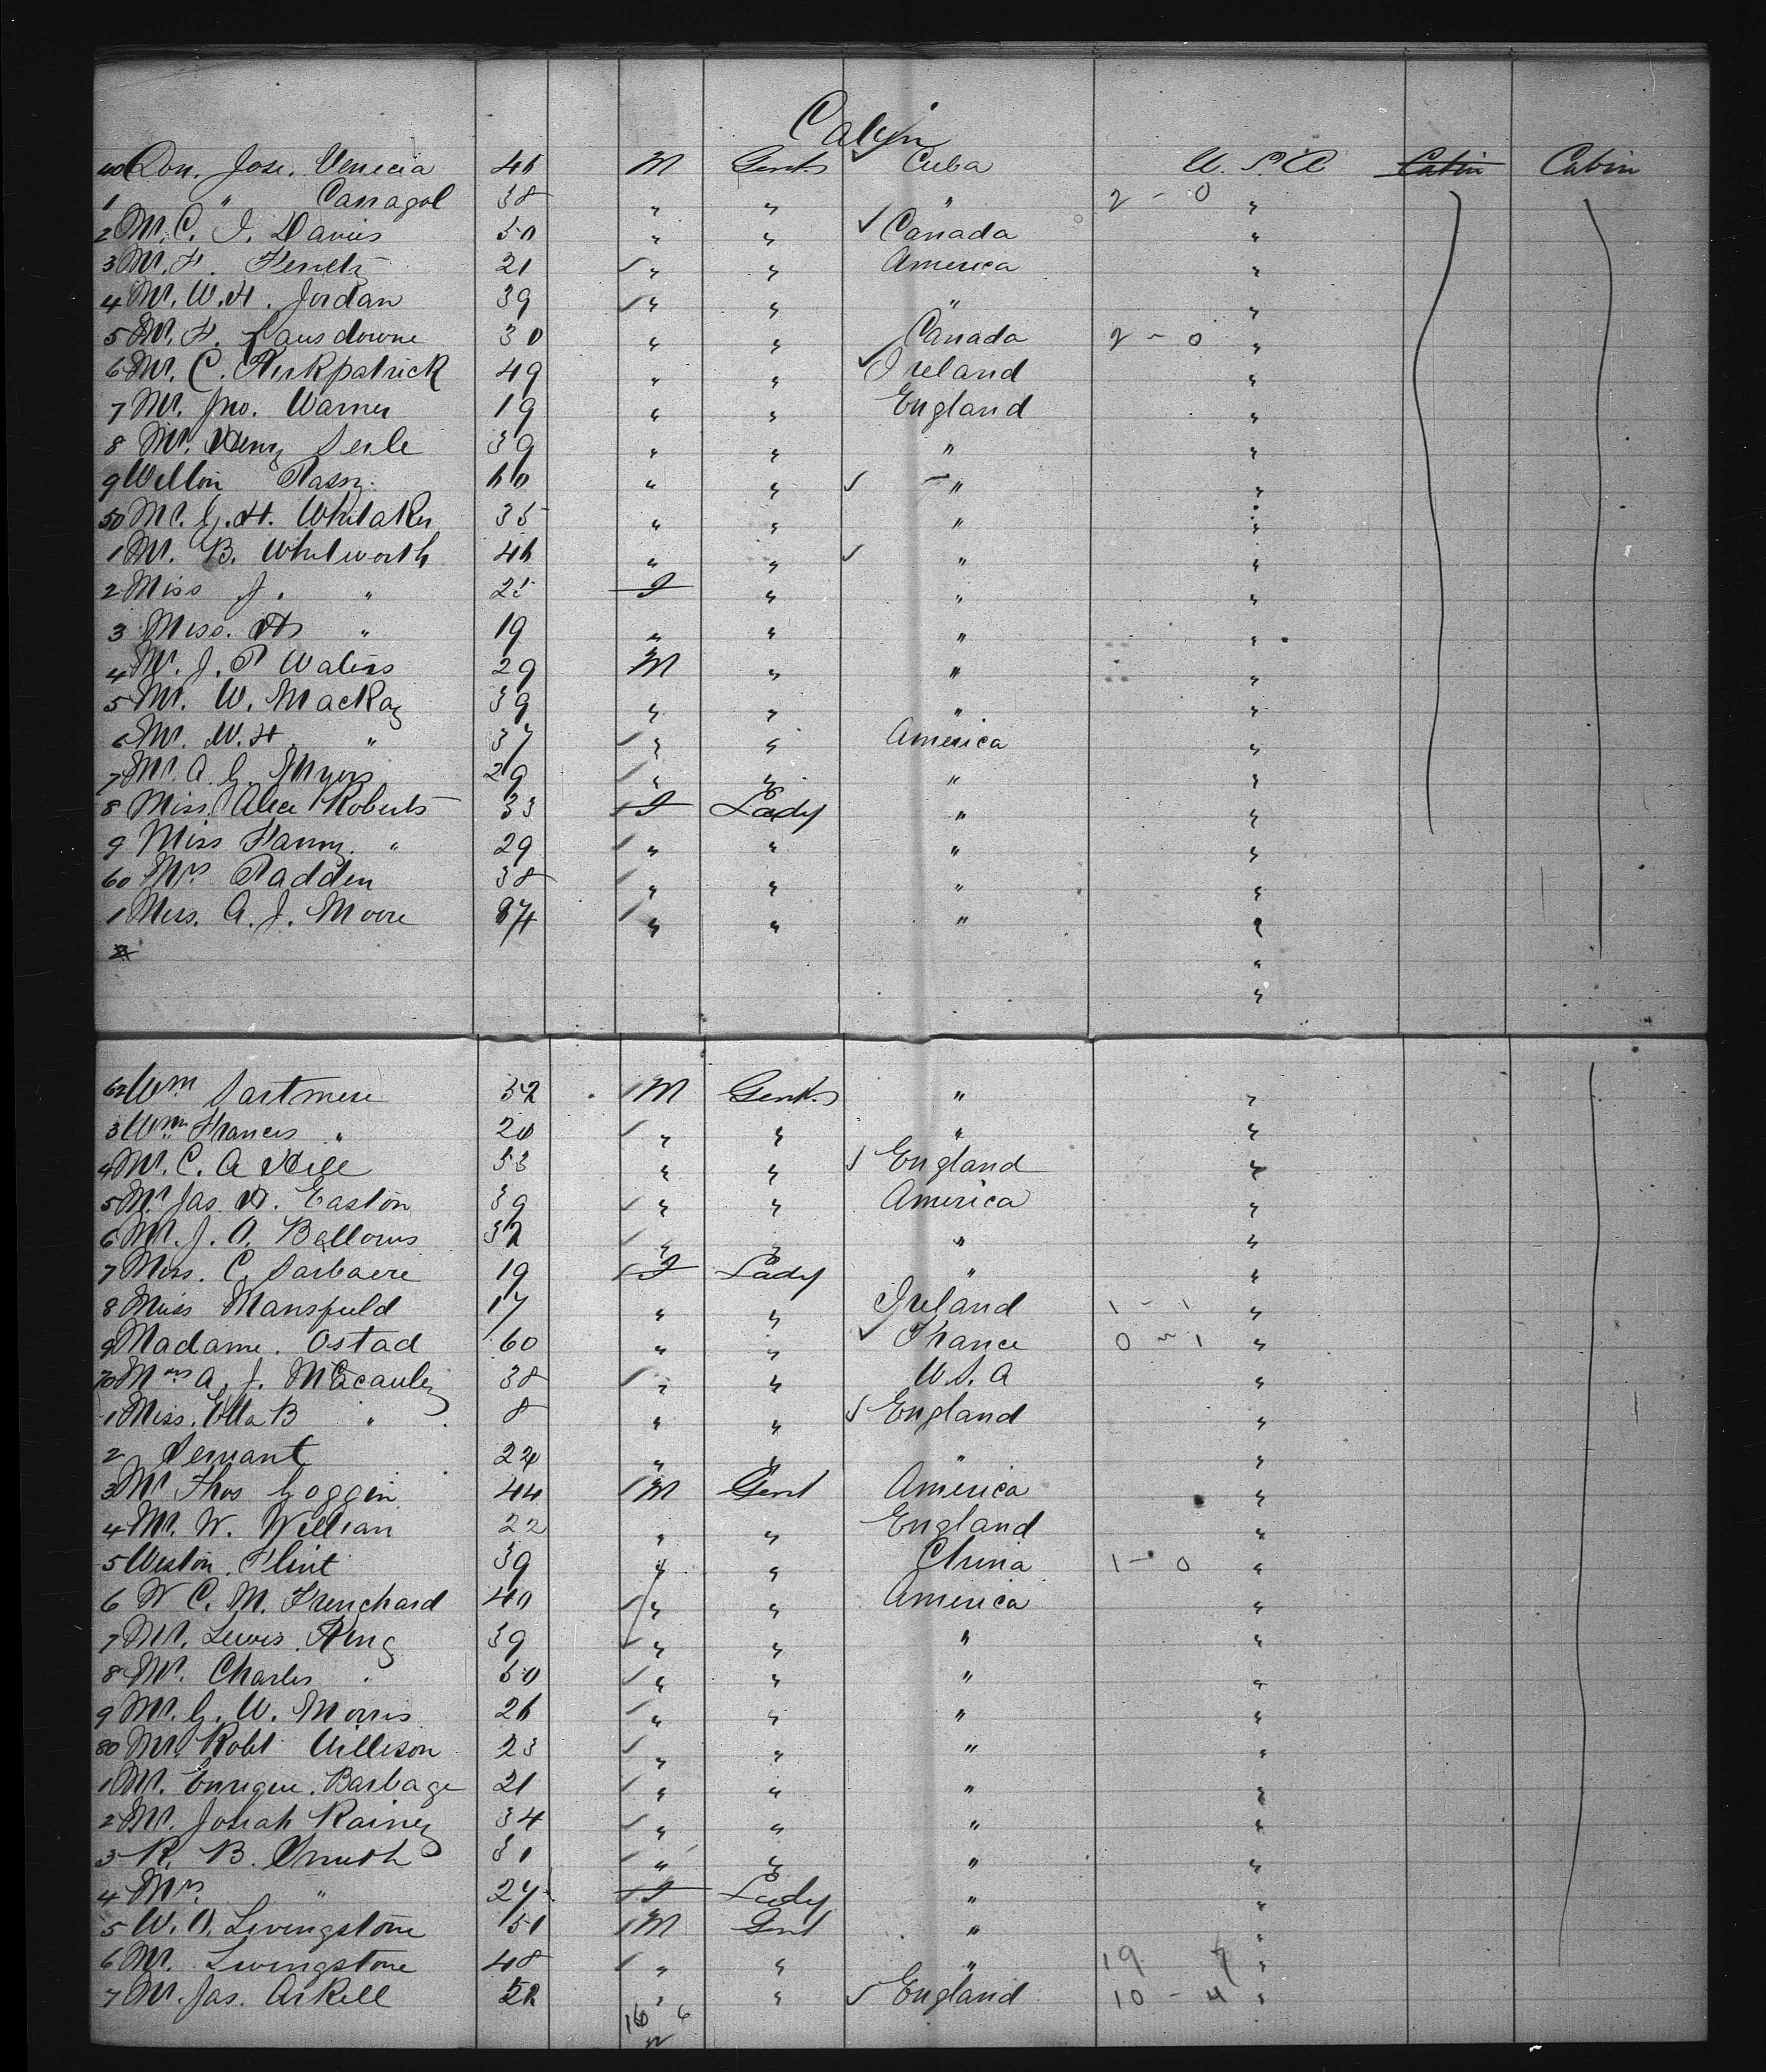 Cabin
40 Don. Jose. Venecia 46 M Gents Cuba U.S.A Cabin Cabin
1 " Carragol 38 " " " 2 - 0 "
2 Mr. C. J. Davies 50 " " Canada "
3 Mr. F. 21 " " America "
4 Mr. W. H. Jordan 39 " " " "
5 Mr. F. Lansdowne 30 " " Canada 2 - 0 "
6 Mr. C. Kirkpatrick 49 " " Ireland "
7 Mr. Jno. Warner 19 " " England "
8 Mr. Henry Serle 39 " " " "
9 60 " " " "
50 Mr. G. H. Whitaker 35 " " " "
1 Mr. B. Whitworth 46 " " " "
2 Miss J. " 25 F " " "
3 Miss. H " 19 " " " "
4 Mr. J. P Waters 29 M " " "
5 Mr. W. Mackay 39 " " " "
6 Mr. W. H. " 37 " " America "
7 Mr. A. G. Myers 29 " " " "
8 Miss Alice Roberts 33 F Lady " "
9 Miss Fanny. " 29 " " " "
60 Mrs Padden 38 " " " "
1 Miss. A. J. Moore " " " "
"
"
62 Wm Sartmere 32 M Gents " "
3 Wm Francis " 20 " " " "
4 Mr. C. A Hill 53 " " England "
5 Mr Jas. H. Easton 39 " " America "
6 Mr. J. O. Bellows 32 " " " "
7 Miss. C. Sarbaere 19 F Lady " "
8 Miss Mansfield 17 " " Ireland 1 - 1 "
9 Madame. Ostad 60 " " France 0 - 1 "
70 Mrs A. J. McCauley 38 " " U.S.A "
1 Miss. Etta B " 8 " " England "
2 Servant 24 " " " "
3 Mr Thos Goggin 44 M Gent America "
4 Mr. W. Willian 22 " " England "
5 Weston. Flint 39 " " China 1 - 0 "
6 W C. M. Trenchard 40 " " America "
7 Mr. Lewis King 39 " " " "
8 Mr. Charles " 50 " " " "
9 Mr. G. W. Morris 26 " " " "
80 Mr. Robt Willison 23 " " " "
1 Mr. Enrique. Barbage 21 " " " "
2 Mr. Josiah Rainey 34 " " " "
3 R. B. Smith 31 " " " "
4 Mrs. " 27 F Lady " "
5 W. A. Livingstone 51 M Gent " "
6 Mr. Livingstone 48 " " " 19 "
7 Mr. Jas. Arkell 52 " " England 10 - 4 "
16 6